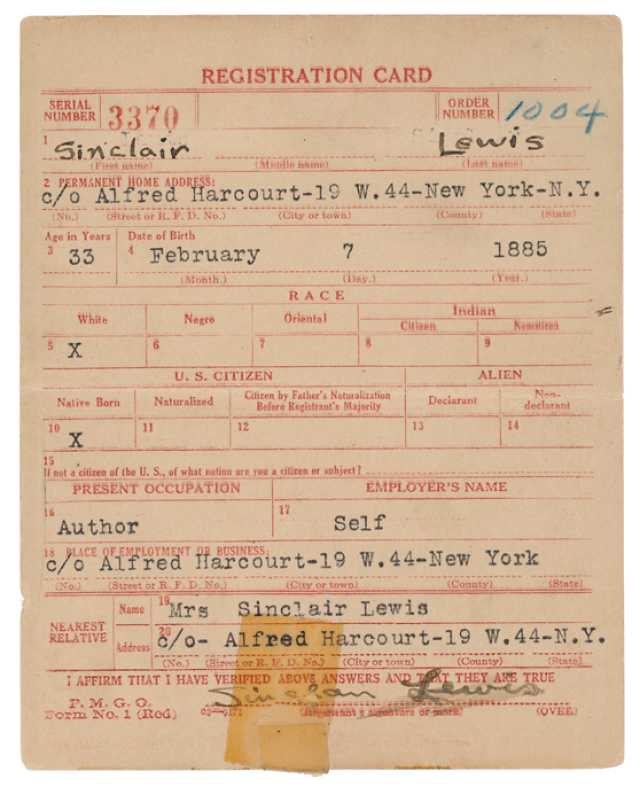 REGISTRATION CARD
SERIAL NUMBER 3370 ORDER NUMBER 1004
1 Sinclair Lewis
(First name) (Middle name) (Last name)
2 PERMANENT HOME ADDRESS:
c/o Alfred Harcourt-19 W.44-New York-N.Y.
(No.) (Street or R. F. D. No.) (City or town) (County) (State)
Age in Years Date of Birth
3 33 4 February 7 1885
(Month.) (Day.) (Year.)
RACE
White Negro Oriental Indian
Citizen Noncitizen
5 X 6 7 8 9
U. S. CITIZEN ALIEN
Native Born Naturalized Citizen by Father's Naturalization Before Registrant's Majority Declarant Non-declarant
10 X 11 12 13 14
15
If not a citizen of the U. S., of what nation are you a citizen or subject?
PRESENT OCCUPATION EMPLOYER'S NAME
16 Author 17 Self
18 PLACE OF EMPLOYMENT OR BUSINESS:
c/o Alfred Harcourt-19 W.44-New York
(No.) (Street or R. F. D. No.) (City or town) (County) (State)
NEAREST RELATIVE Name 19 Mrs Sinclair Lewis
Address 20 c/o- Alfred Harcourt-19 W.44-N.Y.
(No.) (Street or R. F. D. No.) (City or town) (County) (State)
I AFFIRM THAT I HAVE VERIFIED ABOVE ANSWERS AND THAT THEY ARE TRUE
Sinclair Lewis
P. M. G. O.
Form No. 1 (Red) (Registrant's signature or mark) (OVER)